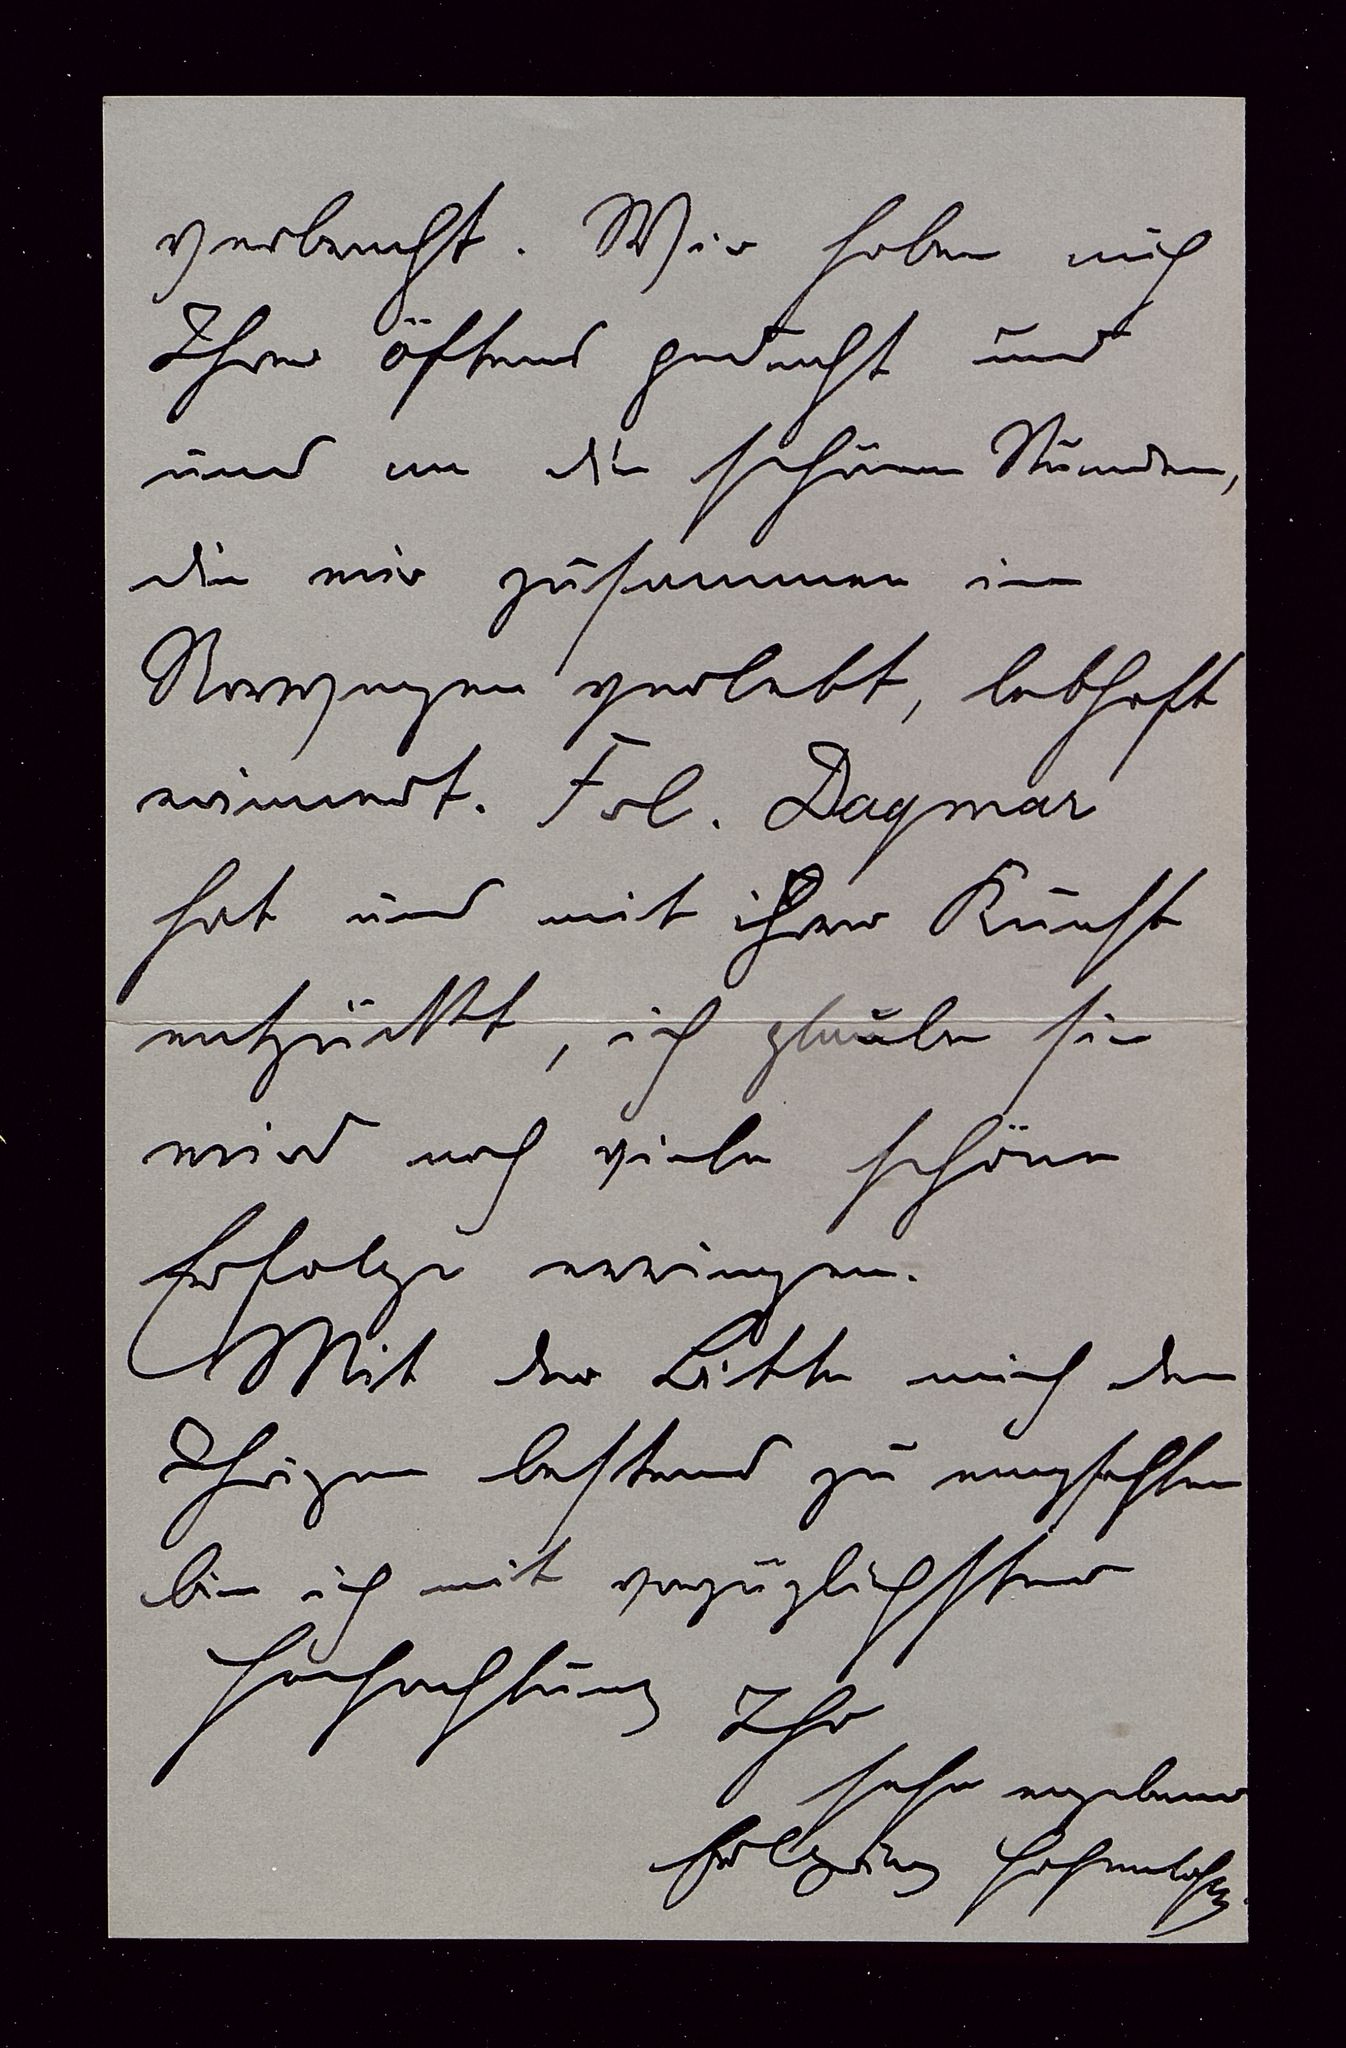 verbracht. Wir haben auch
Ihrer öfters gedacht und
uns an die schönen Stunden,
die wir zusammen in
Norwegen verlebt, lebhaft
erinnert. Frl. Dagmar
hat uns mit ihrer Kunst
entzückt, ich glaube sie
wird noch viele schöne
Erfolge erringen.
Mit der Bitte mich den
Ihrigen bestens zu empfehlen
bin ich mit vorzüglichster
Hochachtung Ihr
sehr ergebener
Erbprinz Hohenlohe.